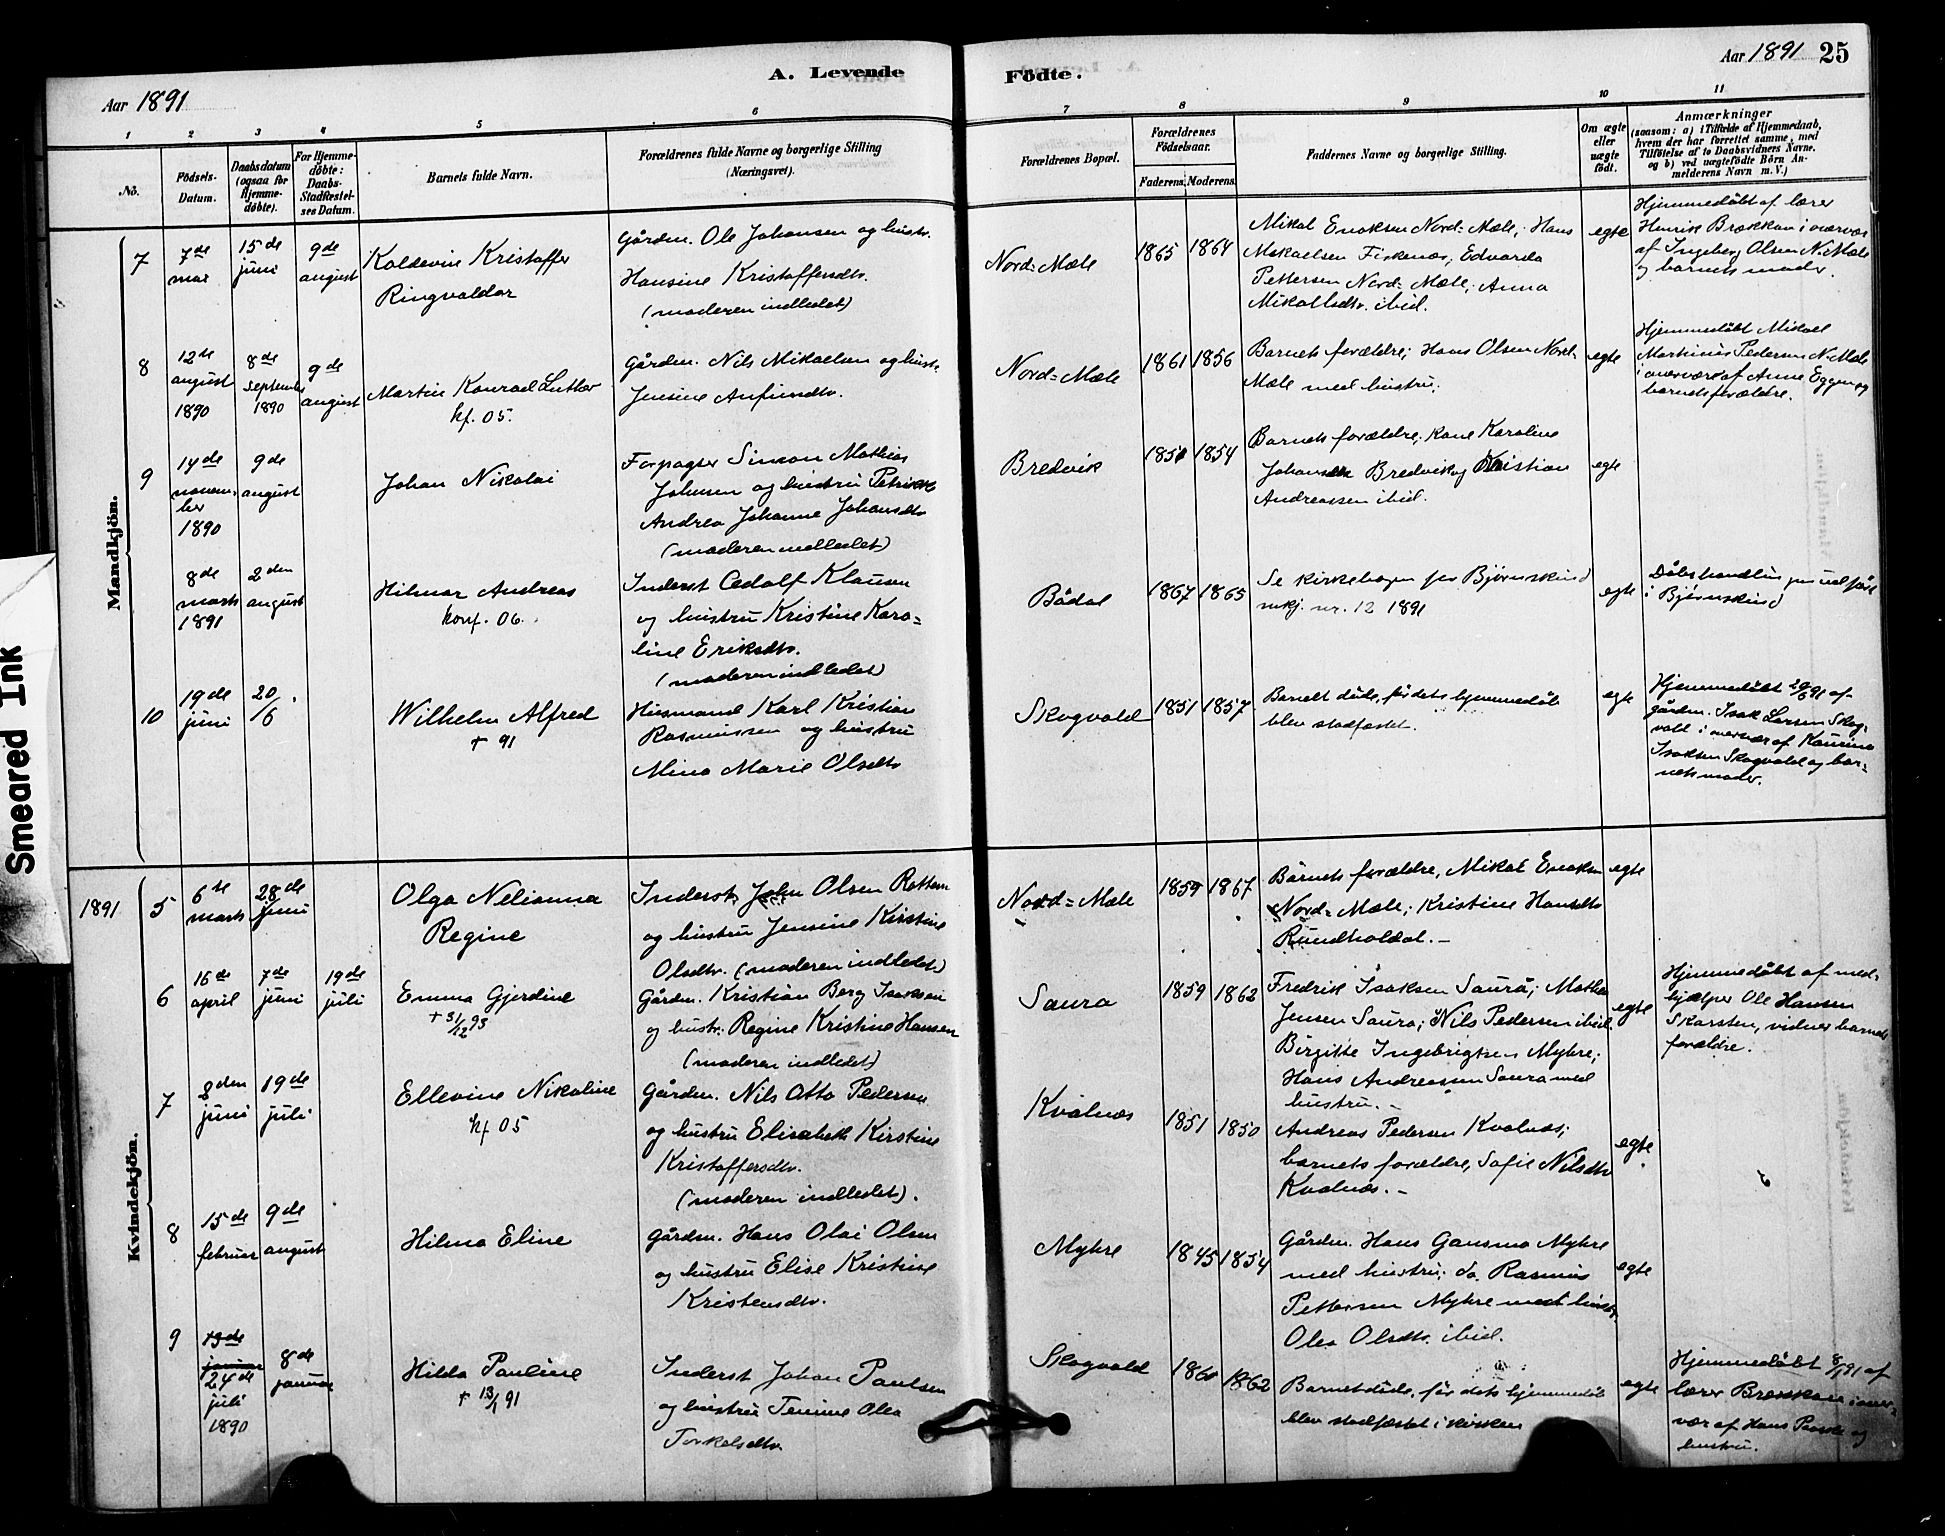 Aar 1891
A. Levende
Födte.
Aar 1891 25
1 2 3 4 5 6 7 8 9 10 11
No.
Födsels-
Datum.
Daabsdatum
(ogsaa for
Hjemme-
döbte).
For Hjemme-
döbte:
Daabs-
Stadfæstel-
ses Datum.
Barnets fulde Navn.
Forældrenes fulde Navne og borgerlige Stilling
(Næringsvei).
Forældrenes Bopæl.
Forældrenes
Födselsaar.
Faderens. Moderens.
Faddernes Navne og borgerlige Stilling.
Om ægte
eller
uægte
født.
Anmærkninger
(saasom: a) i Tilfælde af Hjemmedaab,
hvem der har forrettet samme, med
Tilföielse af to Daabsvidners Navne.
og b) ved uægtefödte Börn An-
melderens Navn m. V.)
Mandkjön.
7
7de
mai
15de
juni
9de
august
Koldevin Kristoffer
Ringvaldor
Gårdm. Ole Johansen og hustr.
Hansine Kristoffersdtr.
(moderen indledet)
Nord=Mæle
1865 1864
Mikal Enoksen Nord=Mæle; Hans
Mikaelsen Fiskenæs; Edvarda
Pettersen Nord=Mæle; Anna
ibid.
egte
Hjemmedøbt af lærer
Henrik Brækkan i overvær
af Ingeborg Olsen N. Mæle
og barnets moder.
8
12te
august
1890
8de
september
1890
9de
august
Martin Konrad Luther
kf. 05.
Gårdm. Nils Mikaelsen og hust.
Jensine Anfinsdtr.
Nord=Mæle
1861 1856
Barnets forældre; Hans Olsen Nord-
Mæle med hustru;
egte
Hjemmedøbt Mikael
Martinus Pedersen N. Mæle
i overvær af Anne Eggen og
barnets forældre.
9
14de
novem-
ber
1890
9de
august
Johan Nikolai
Forpagter Simon Mathias
Johnsen og hustru Petrikke
Andrea Johanne Johansdtr
(moderen indledet)
Bredvik
1851 1854
Barnets forældre; kone Karoline
Bredvik og Kristian
Andreassen ibid.
egte
8de
marts
1891
2den
august
Hilmar Andreas
konf. 06.
Inderst Adolf Klausen
og hustru Kristine Karo=
line Eriksdtr.
(moderen indledet)
Bådal
1867 1865
Se kirkebogen for Bjørnskind
mkj. nr. 12 1891
egte
Dåbshandlingen udført
i Bjørnskind
10
19de
juni
20/6
Wilhelm Alfred
+ 91
Husmand Karl Kristian
Rasmussen og hustru
Mina Marie Olsdtr
Skogvold
1851 1857
Barnet døde, før dets hjemmedåb
blev stadfæstet.
egte
Hjemmedøbt 20/6 91 af
gårdm. Isak Larsen Skog-
vold i overvær af
Isaksen Skogvold og bar=
nets moder.
1891
Kvindekjön.
5
6te
marts
28de
juni
Olga Nelianna
Regine
Inderst John Olsen
og hustru Jensine Kirstine
Olsdtr. (moderen indledet)
Nord=Mæle
1859 1867
Barnets forældre, Mikal Enoksen
Nord=Mæle; Kristine Hansdtr
Rundholdal. –
egte
6
16de
april
7de
juni
19de
juli
Emma Gjerdine
+ 31/12 93
Gårdm. Kristian Berg Isaksen
og hustr. Regine Kristine Hansen
(moderen indledet)
Saura
1859 1862
Fredrik Isaksen Saura; Mathea
Jensen Saura; Nils Pedersen ibid
Birgitte Ingebrigtsen Myhre;
Hans Andreassen Saura med
hustru. –
egte
Hjemmedøbt af med-
hjælper Ole Hansen
Skarsten, vidner barnets
forældre.
7
2den
juni
19de
juli
Ellevine Nikoline
kf 05
Gårdm. Nils Otto Pedersen
og hustru Elisabeth Kirstine
Kristoffersdtr.
(moderen indledet).
Kvalnæs
1851 1850
Andreas Pedersen Kvalnæs;
barnets forældre, Sofie Nilsdtr
Kvalnæs. –
egte
8
15de
februar
9de
august
Hilma Eline
Gårdm. Hans Olai Olsen
og hustru Elise Kristine
Kristensdtr.
Myhre
1845 1854
Gårdm. Hans Gansmo Myhre
med hustru; do. Rasmus
Pettersen Myhre med hustr.
Olea Olsdtr. ibid.
egte
9
13de
januar
24de
juli
1890
8de
januar
Hilda Pauline
+ 13/1 91
Inderst Johan Paulsen
og hustru Olea
Torkelsdtr.
Skogvold
1860 1862
Barnet døde, før dets hjemmedåb
blev stadfæstet i kirken
egte
Hjemmedøbt 8/1 91 af
lærer Brækkan i over-
vær af Hans og
hustru.
Smeared Ink